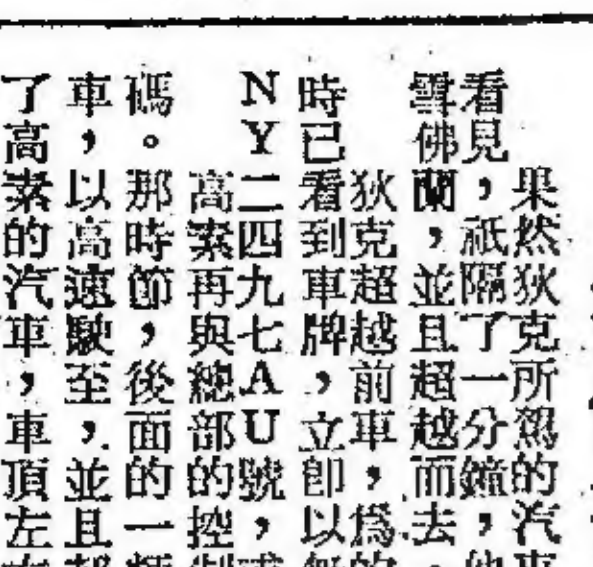 果然狄克所駕的汽車
看見，祇隔了一分鐘，他
雪佛蘭，並且超越而去，
狄克超越前車，爲的
時已看到車牌，立即以無
NY二四九七AU號，
高素再與總部的控制
碼。那時節，後面的一輛
車，以高速駛至，並且
了高素的汽車，車頂左